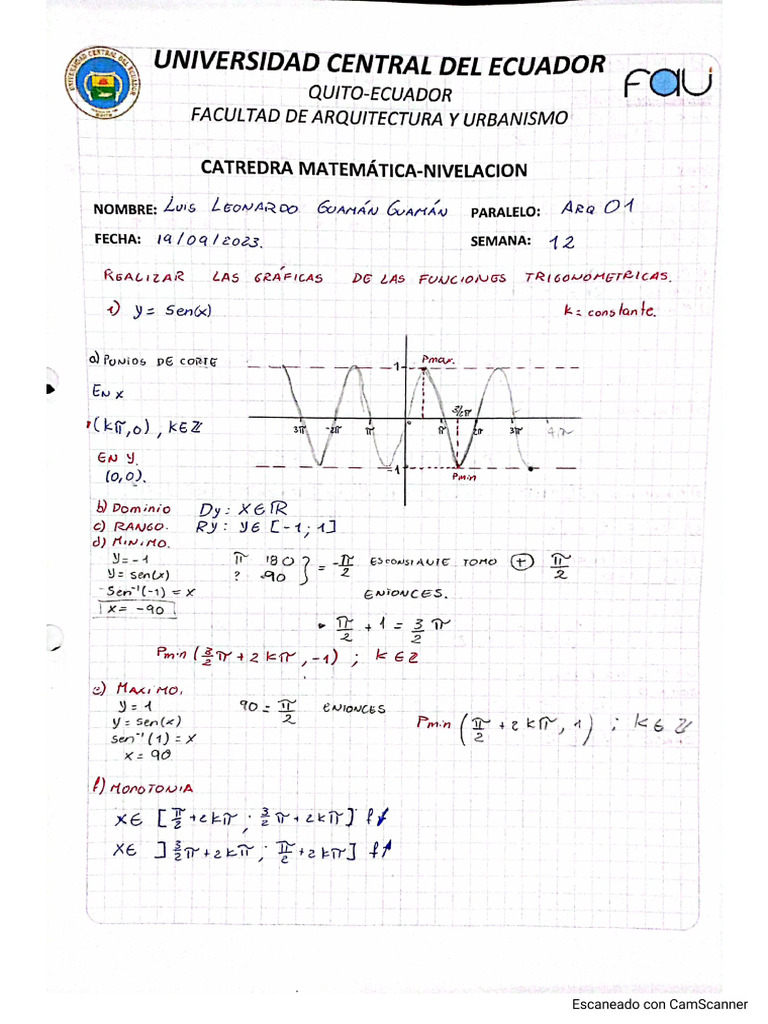 UNIVERSIDAD CENTRAL DEL ECUADOR
QUITO-ECUADOR
FACULTAD DE ARQUITECTURA Y URBANISMO
FAU
CATREDRA MATEMÁTICA-NIVELACION
NOMBRE: LUIS LEONARDO GUAMÁN GUAMÁN PARALELO: ARQ 01
FECHA: 19/09/2023. SEMANA: 12
REALIZAR LAS GRÁFICAS DE LAS FUNCIONES TRIGONOMETRICAS.
1) y = Sen(x) k = constante.
a) PUNTOS DE CORTE
EN X
(kπ,0), k∈ℤ
EN Y.
(0,0).
1 Pmax.
3π -2π π 0 π 3/2π 2π 3π 4π
-1 Pmin
b) Dominio Dy: X∈ℝ
c) RANGO. Ry: y∈ [-1; 1]
d) MINIMO.
y=-1 π 180 } = -π/2 ES CONSTANTE TOMO (+) π/2
y = sen(x) ? -90
Sen⁻¹(-1) = x ENTONCES.
x = -90
π/2 + 1 = 3/2 π
Pmin (3/2π + 2kπ, -1) ; k∈ℤ
e) MAXIMO.
y = 1 90 = π/2 ENTONCES
y = sen(x) Pmin (π/2 + 2kπ, 1) ; k∈ℤ
sen⁻¹(1) = x
x = 90
f) MONOTONIA
X∈ [π/2+2kπ ; 3/2π+2kπ] f↓
X∈ ]3/2π+2kπ ; π/2+2kπ] f↑
Escaneado con CamScanner